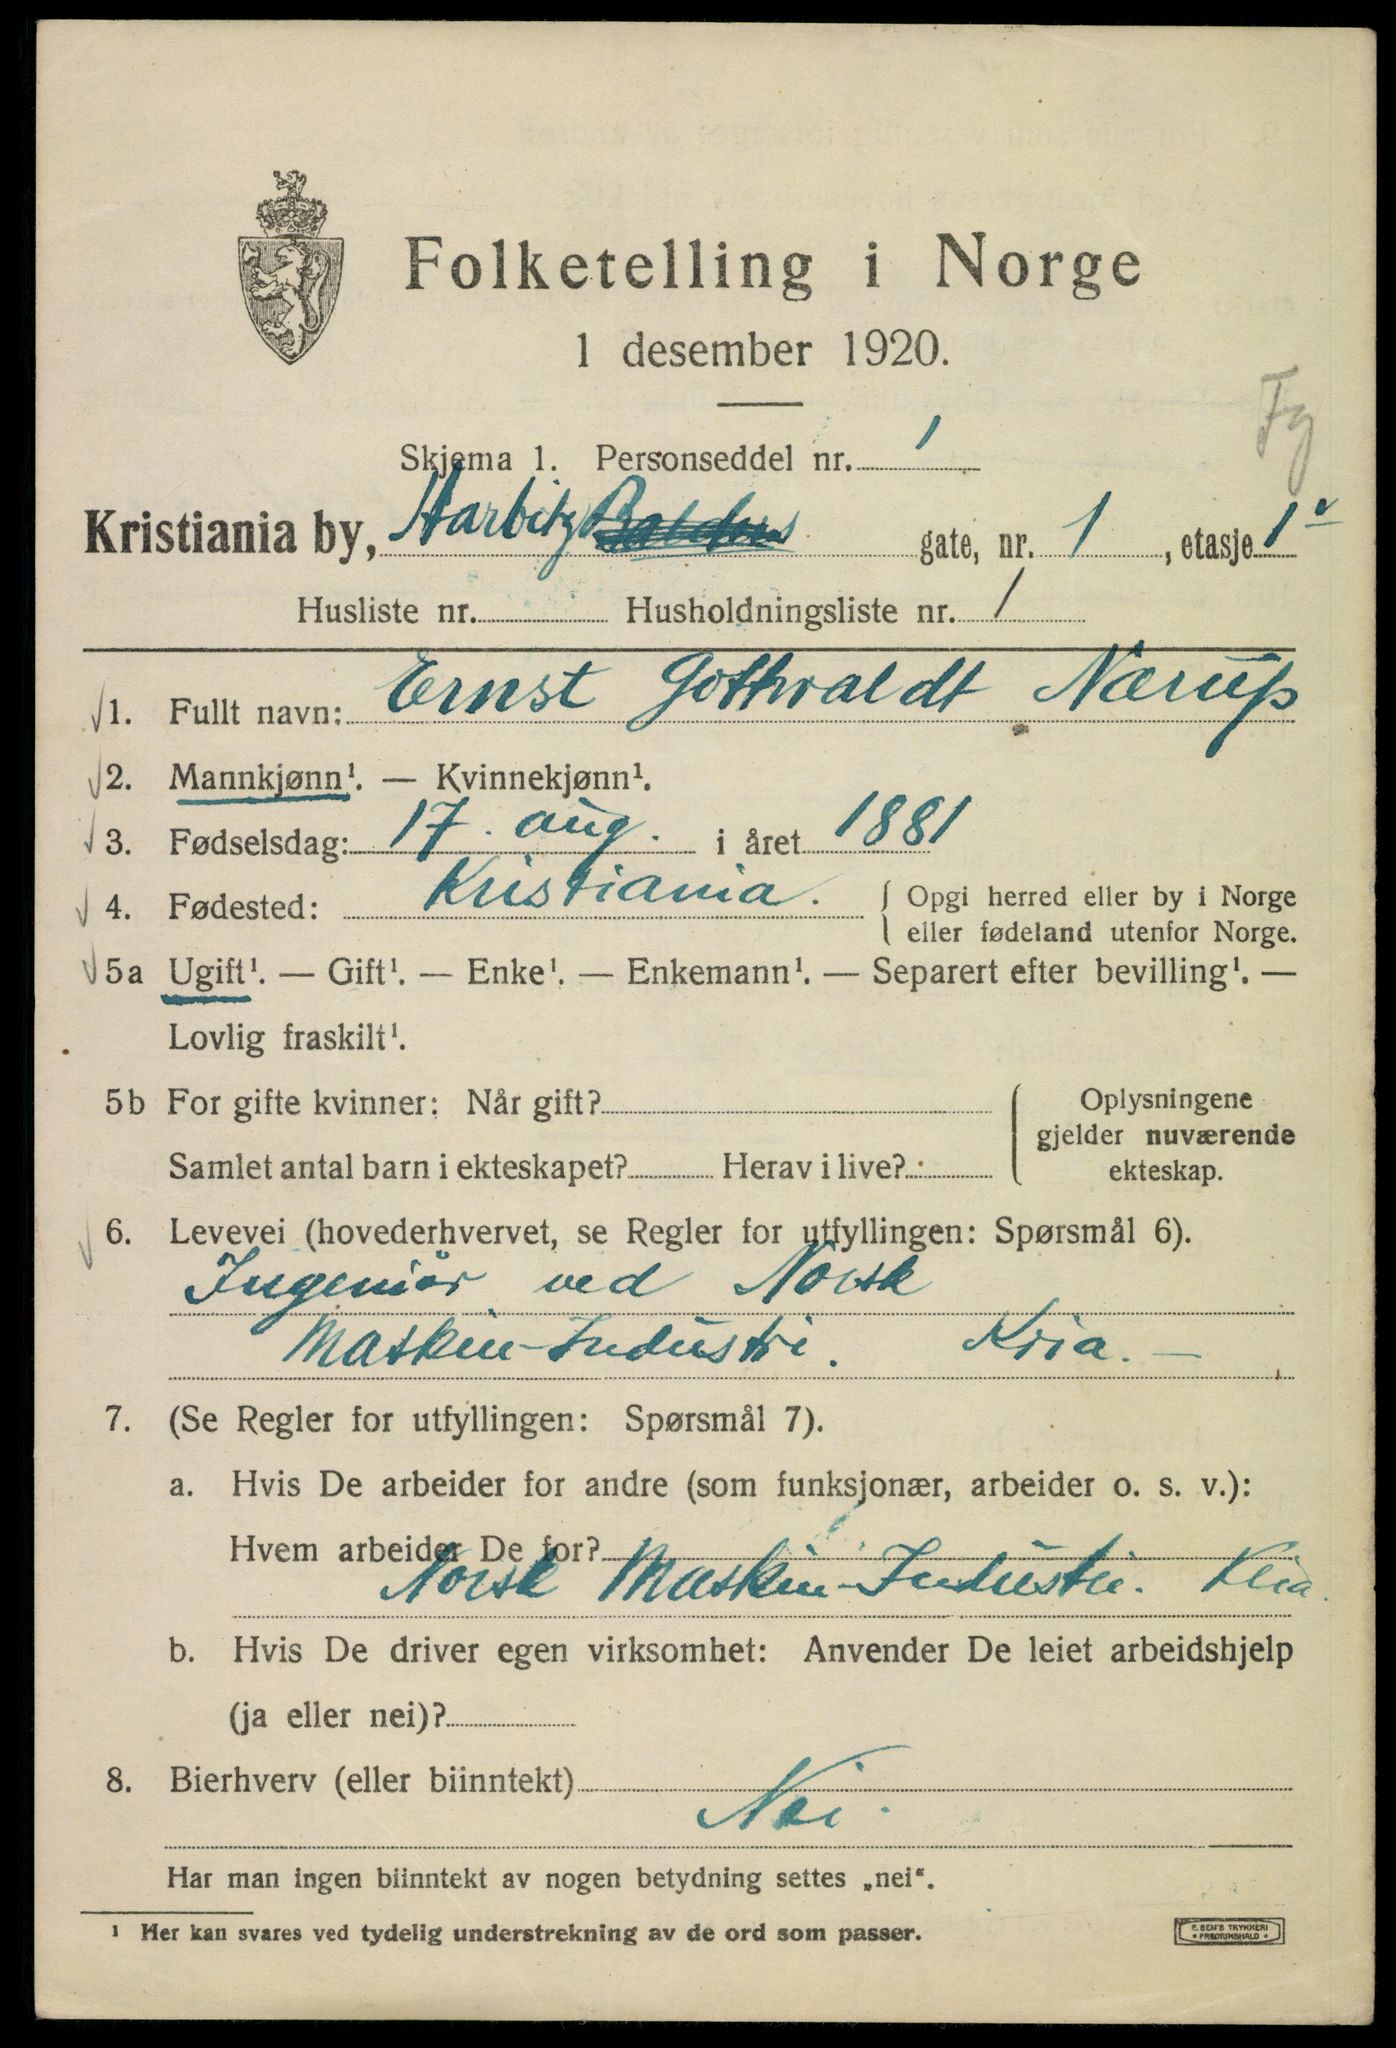 Folketelling i Norge
1 desember 1920.
Fg
Skjema 1. Personseddel nr. 1
Kristiania by, Harbitz gate, nr. 1, etasje 1
Husliste nr. Husholdningsliste nr. 1
1. Fullt navn: Ernst Gotthvaldt Nærup
2. Mannkjønn¹. — Kvinnekjønn¹.
3. Fødselsdag: 17. aug. i året 1881
4. Fødested: Kristiania. { Opgi herred eller by i Norge
eller fødeland utenfor Norge.
5a Ugift¹. — Gift¹. — Enke¹. — Enkemann¹. — Separert efter bevilling¹. —
Lovlig fraskilt¹.
5b For gifte kvinner: Når gift? { Oplysningene
gjelder nuværende
Samlet antal barn i ekteskapet? Herav i live? ekteskap.
6. Levevei (hovederhvervet, se Regler for utfyllingen: Spørsmål 6).
Ingeniør ved Norsk
Maskin-Industri. Kria. —
7. (Se Regler for utfyllingen: Spørsmål 7).
a. Hvis De arbeider for andre (som funksjonær, arbeider o. s. v.):
Hvem arbeider De for?
Norsk Maskin-Industri. Kria.
b. Hvis De driver egen virksomhet: Anvender De leiet arbeidshjelp
(ja eller nei)?
8. Bierhverv (eller biinntekt)
Nei.
Har man ingen biinntekt av nogen betydning settes „nei".
¹ Her kan svares ved tydelig understrekning av de ord som passer.
E. SEM'S TRYKKERI
* FREDRIKSHALD *